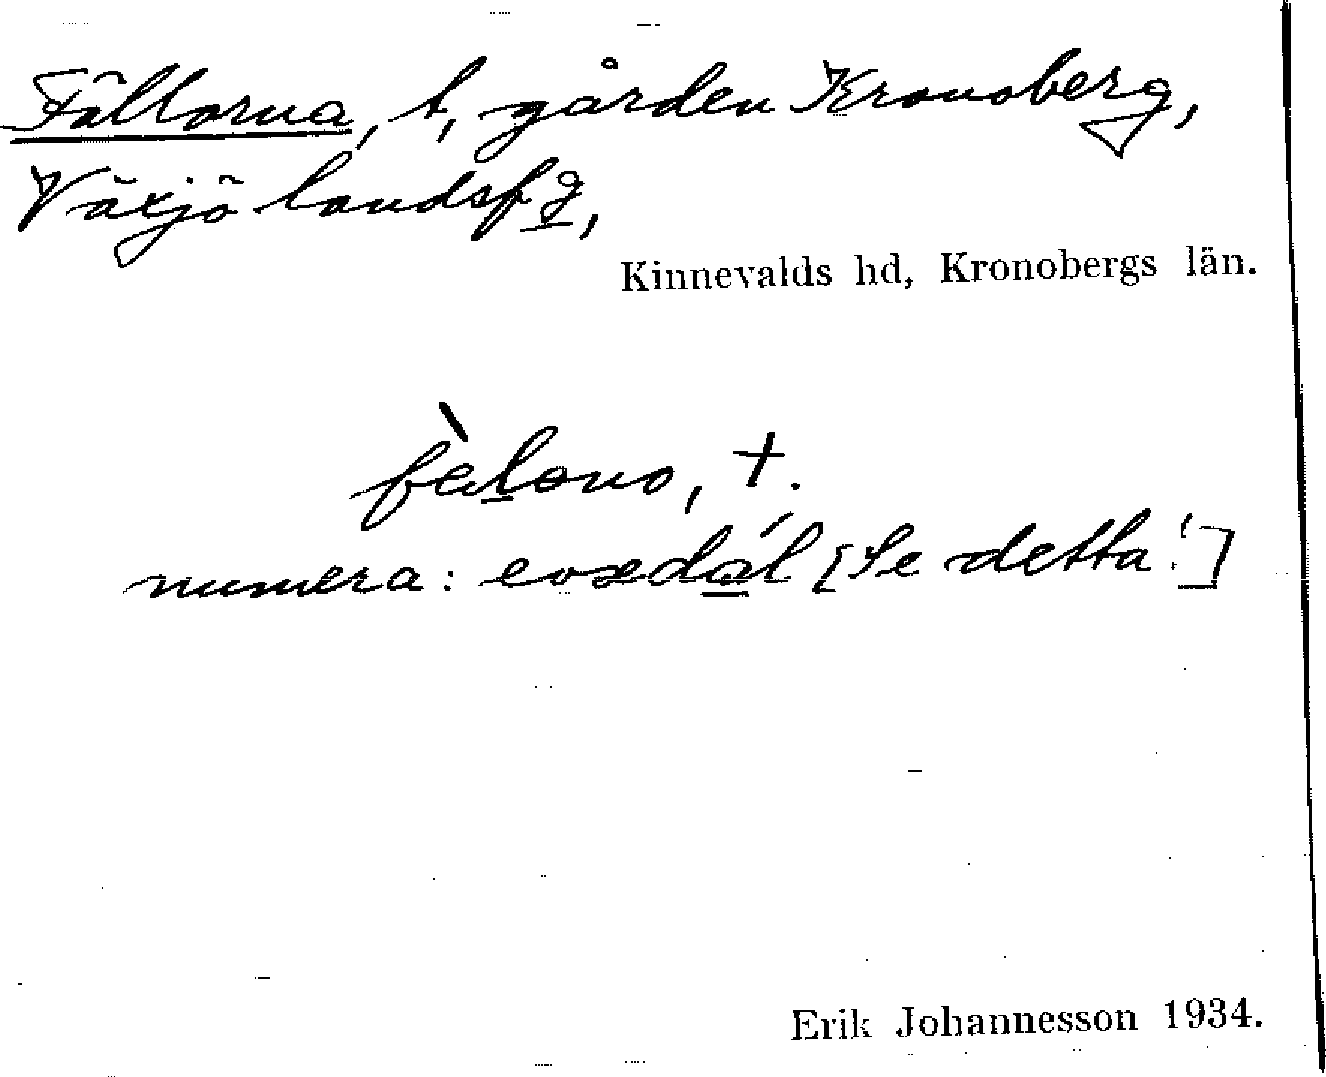 Fällorna, t, gården Kronoberg,
Växjö landsfg,
Kinnevalds hd, Kronobergs län.
fὲlono, †.
numera: evedál [Se detta!]
Erik Johannesson 1934.